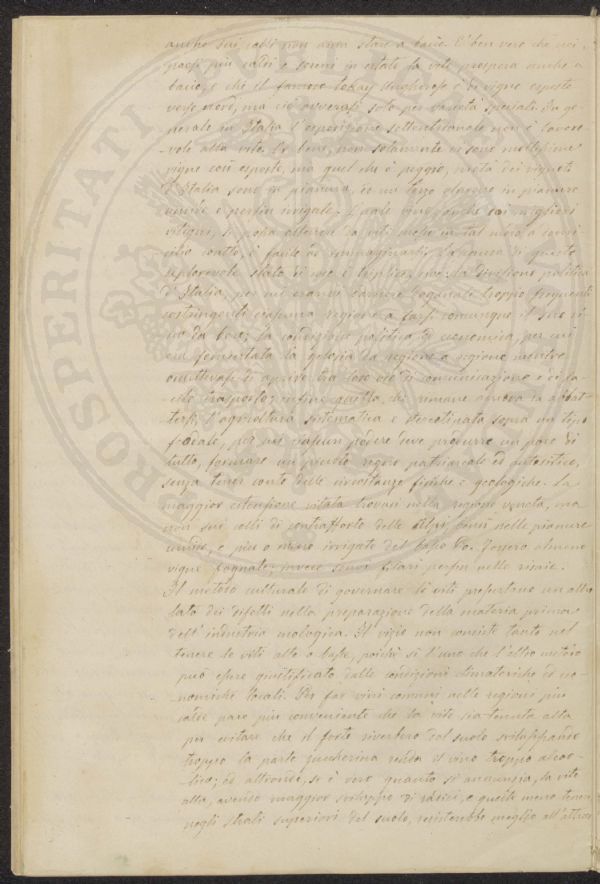 anche sui colli non ama stare a bacìo. È ben vero che nei
paesi più caldi e sereni in estate la vite prospera anche a
bacìo, e che il famoso tokay Ungherese è di vigne esposte
verso nord, ma ciò avverasi solo per varietà speciali. In ge-
nerale in Italia l'esposizione settentrionale non è favore-
vole alla vite. Or bene, non solamente vi sono moltissime
vigne così esposte, ma quel che è peggio, metà dei vigneti
d'Italia sono in pianura, ed un terzo almeno in pianure
umide e perfin irrigate. Quale vino, anche dai migliori
vitigni, si possa ottenere da viti anche in tal modo a
condotte, è facile ad immaginarsi. La causa di questo
deplorevole stato di cose è triplice, ma la divisione politica
d'Italia, per cui eranvi barriere doganali troppo frequenti
costringenti ciascuna regione a farsi comunque il suo vi-
no da bere; la condizione politica ed economica, per cui
era fomentata la gelosia da regione a regione mentre
omettevasi di aprire tra loro vie di comunicazione e di fa-
cile trasporto; infine quella, che rimane ancora la
l'agricoltura sistematica e sopra un tipo
feodale, per cui ciascun podere deve produrre un poco di
tutto, formare un piccolo regno patriarcale ed autocritico,
senza tener conto delle circostanze fisiche e geologiche. La
maggior estensione vitata trovasi nella regione veneta, ma
non sui colli di contrafforte delle Alpi, bensì nelle pianure
umide, e più o meno irrigate del basso Po. Fossero almeno
vigne fognate; invece sonvi filari perfin nelle risaie.
Il metodo culturale di governare le viti presentano un altro
lato dei difetti nella preparazione della materia prima
dell'industria enologica. Il vizio non consiste tanto nel
tenere le viti alte o basse, poichè sì l'uno che l'altro metodo
può essere giustificato dalle condizioni climateriche ed eco-
nomiche locali. Per far vini comuni nelle regioni più
calde pare più conveniente che la vite sia tenuta alta
per evitare che il forte riverbero dal suolo sviluppando
troppo la parte zuccherina renda il vino troppo alcoo-
lico; ed altronde, se è vero quanto si annunzia, la vite
alta, avendo maggior sviluppo di radici, e quelle meno tenere
negli strati superiori del suolo, resisterebbe meglio all'attacco
PROSPERITATI PUBLICAE